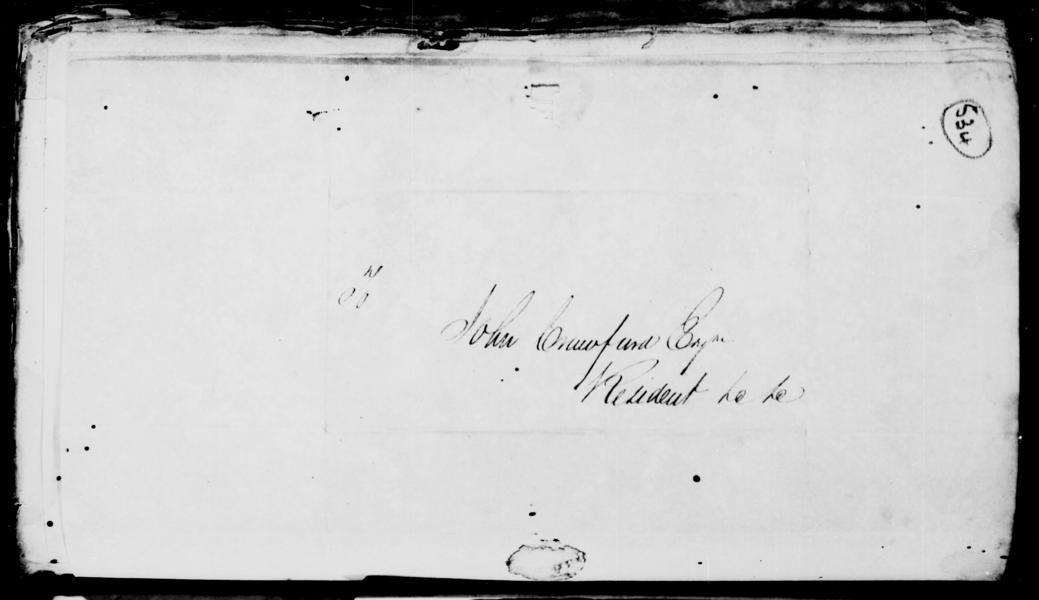 534
To
John Crawfurd Esqr
Resident &c &c